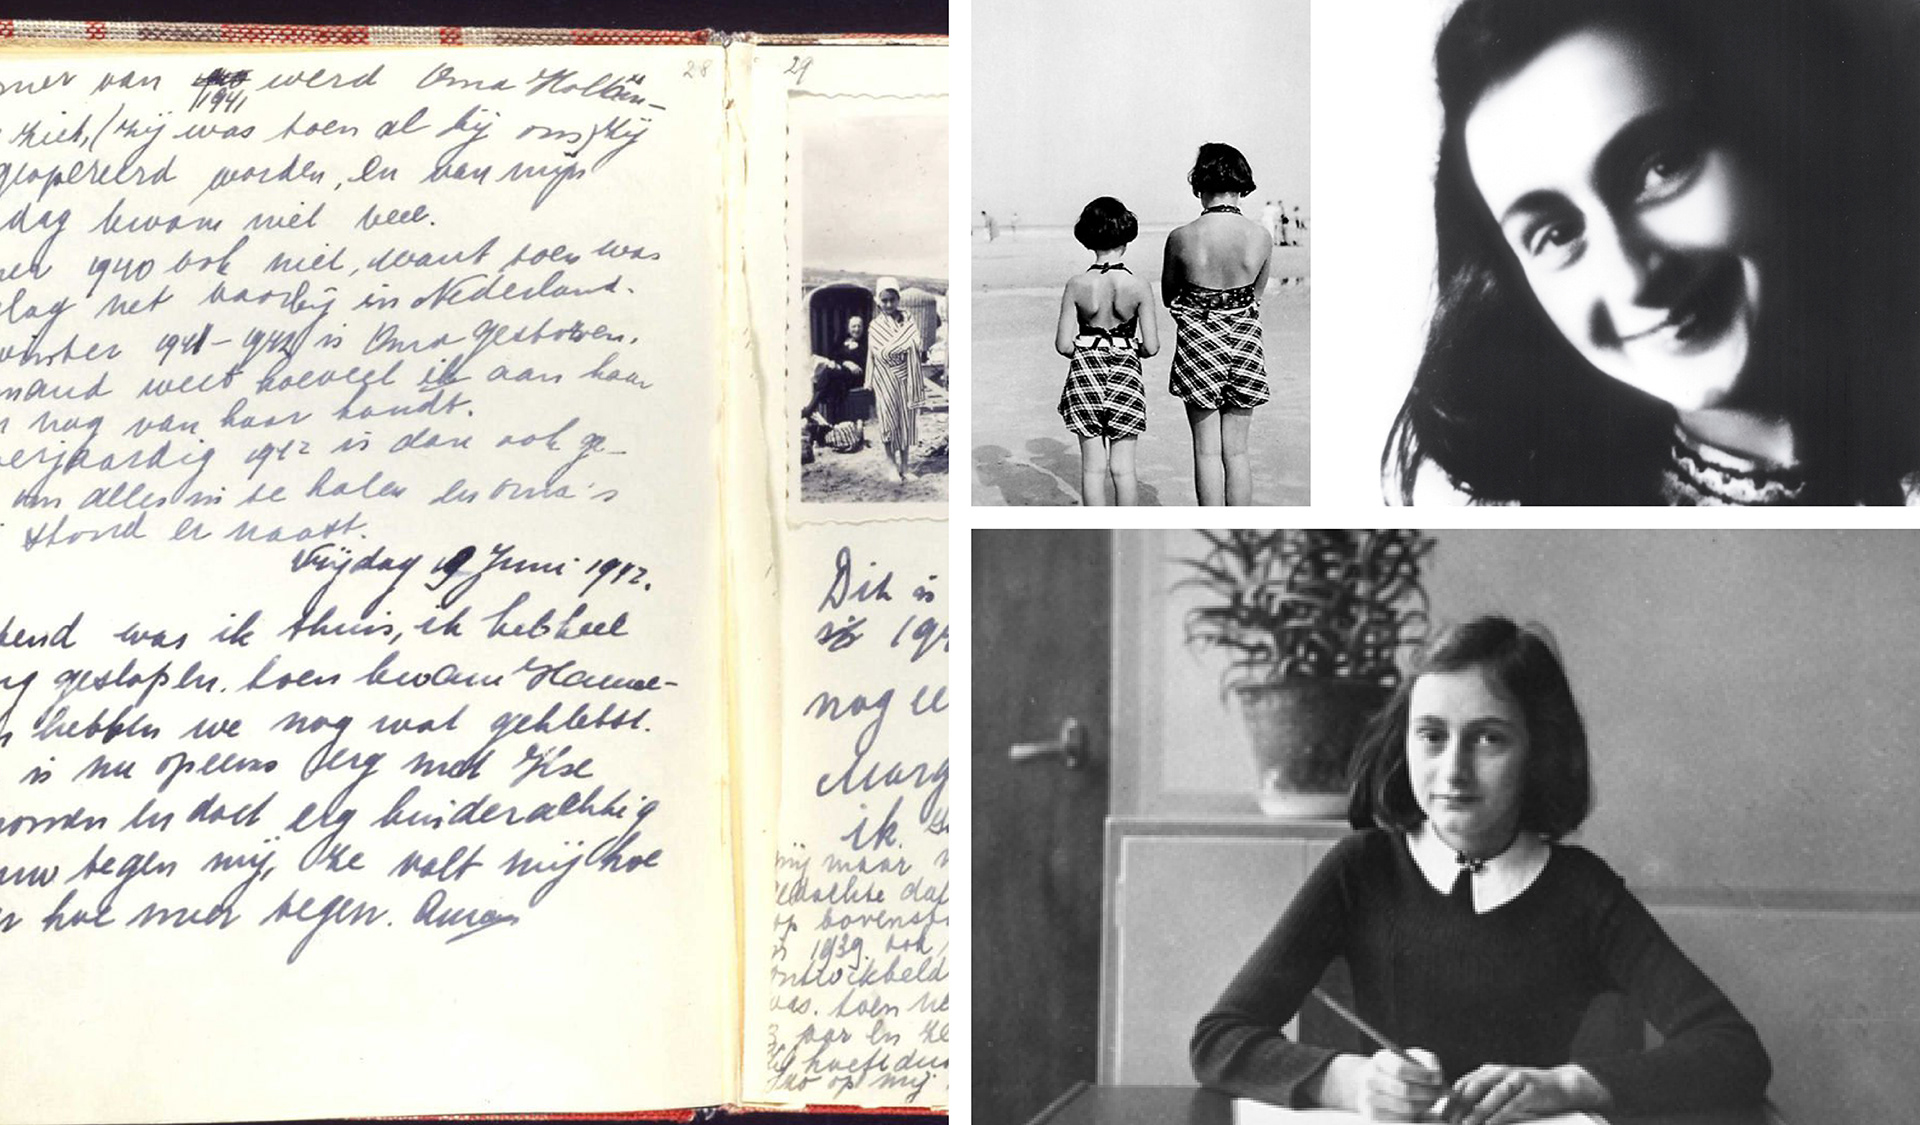 mer van 1941 werd Oma Hollän-
ziek, (zij was toen al bij ons) zij
geopereerd worden, en van mijn
dag kwam niet veel.
1940 ook niet, want toen was
net voorbij in Nederland.
winter 1941-1942 is Oma gestorven.
mand weet hoeveel ik aan haar
nog van haar houdt.
verjaardig 1942 is dan ook ge-
om alles in te halen en Oma's
stond er naast.
Vrijdag 19 Juni 1942.
was ik thuis, ik heb heel
geslapen. toen kwam Hanne-
hebben we nog wat gekletst.
is nu opeens erg met Ilse
en doet erg kinderachtig
tegen mij, Ze valt mij hoe
hoe meer tegen. Anne
28
29
Dit is
194
nog ee
Marg
ik.
mij maar
op bovenst
1939. ook
ontwikkeld
was. toen
jaar en
hoeft
op mij